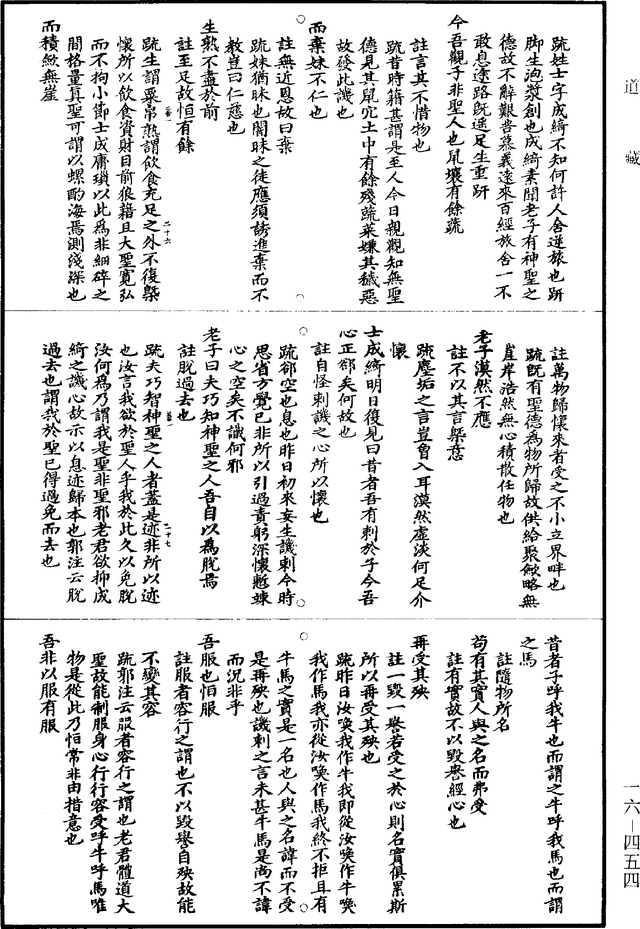 道藏
疏姓士字成綺不知何許人舍逆旅也趼
脚生泡漿創也成綺素聞老子有神聖之
德故不辭艱苦慕義遠來百經旅舍一不
敢息途路既遥足生重趼
今吾觀子非聖人也鼠壤有餘蔬
註言其不惜物也
疏昔時藉甚謂是至人今日親觀知無聖
德見其鼠穴土中有餘殘蔬菜嫌其穢惡
故發此譏也
而棄妹不仁也
註無近恩故曰棄
疏妹猶昧也闇昧之徒應須誘進棄而不
教豈曰仁慈也
生熟不盡於前
註至足故恒有餘
疏生謂粟帛熟謂飲食充足之外不復槩
懷所以飲食資財目前狼藉且大聖寬弘
而不拘小節士成庸瑣以此爲非細碎之
間格量真聖可謂以螺酌海焉測淺深也
而積斂無崖
二十六
註萬物歸懷來者受之不小立界畔也
疏既有聖德爲物所歸故供給聚斂略無
崖岸浩然無心積散任物也
老子漠然不應
註不以其言槩意
疏塵垢之言豈曾入耳漠然虛淡何足介
懷
士成綺明日復見曰昔者吾有刺於子今吾
心正郤矣何故也
註自怪刺譏之心所以懷也
疏郤空也息也昨日初來妄生譏刺今時
思省方覺已非所以引過責躬深懷慙悚
心之空矣不識何邪
老子曰夫巧知神聖之人吾自以爲脫焉
註脫過去也
疏夫巧智神聖之人者蓋是迹非所以迹
也汝言我欲於聖人乎我於此久以免脫
汝何爲乃謂我是聖非聖邪老君欲抑成
綺之譏心故示以息迹歸本也郭注云脫
過去也謂我於聖已得過免而去也
二十七
昔者子呼我牛也而謂之牛呼我馬也而謂
之馬
註隨物所名
苟有其實人與之名而弗受
註有實故不以毀譽經心也
再受其殃
註一毀一譽若受之於心則名實俱累斯
所以再受其殃也
疏昨日汝喚我作牛我即從汝喚作牛喚
我作馬我亦從汝喚作馬我終不拒且有
牛馬之實是一名也人與之名諱而不受
是再殃也譏刺之言未甚牛馬是尚不諱
而況非乎
吾服也恒服
註服者容行之謂也不以毀譽自殃故能
不變其容
疏郭注云服者容行之謂也老君體道大
聖故能制服身心行行容受呼牛呼馬唯
物是從此乃恒常非由措意也
吾非以服有服
一六—四五四